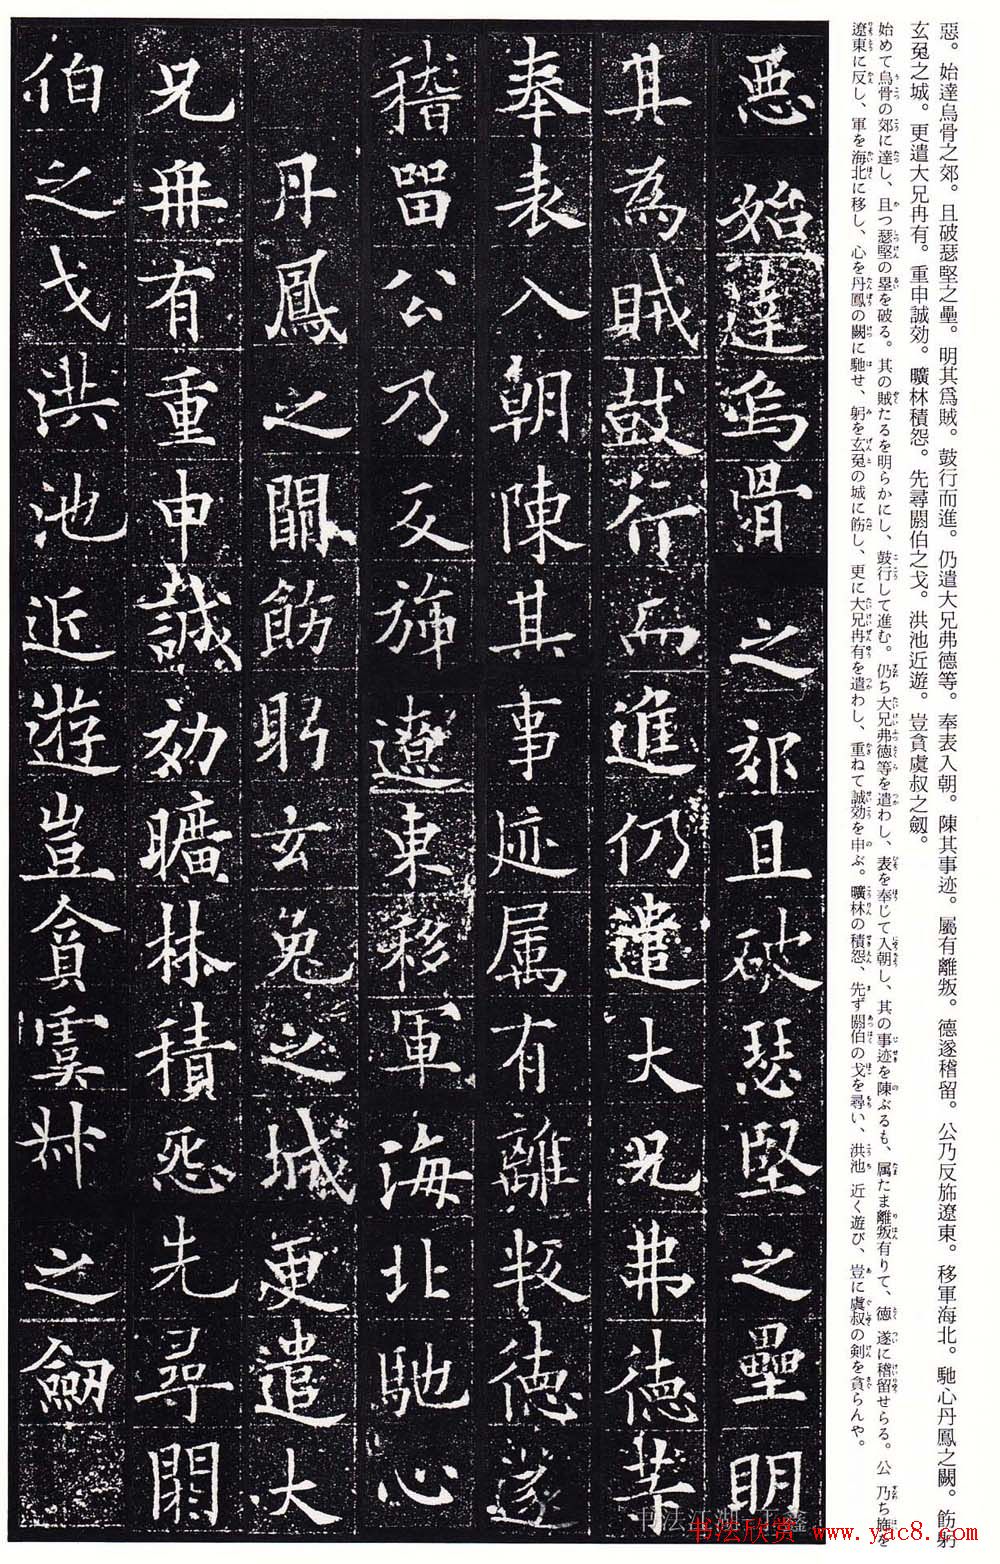 惡。始達烏骨之郊。且破瑟堅之壘。明其爲賊。鼓行而進。仍遣大兄弗德等。奉表入朝。陳其事迹。屬有離叛。德遂稽留。公乃反斾遼東。移軍海北。馳心丹鳳之闕。飭躬
玄兎之城。更遣大兄冉有。重申誠効。曠林積怨。先尋閼伯之戈。洪池近遊。豈貪虞叔之劔。
始めて烏骨の郊に達し、且つ瑟堅の塁を破る。其の賊たるを明らかにし、鼓行して進む。仍ち大兄弗德等を遣わし、表を奉じて入朝し、其の事迹を陳ぶるも、属たま離叛有りて、德遂に稽留せらる。公乃ち斾を
遼東に反し、軍を海北に移し、心を丹鳳の闕に馳せ、躬を玄兎の城に飭し、更に大兄冉有を遣わし、重ねて誠効を申ぶ。曠林の積怨、先ず閼伯の戈を尋い、洪池近く遊び、豈に虞叔の剣を貪らんや。
惡始達烏骨之郊且破瑟堅之壘明
其為賊鼓行而進仍遣大兄弗德等
奉表入朝陳其事迹属有離叛德遂
稽留公乃反斾遼東移軍海北馳心
丹鳳之闕飭躬玄兎之城更遣大
兄冉有重申誠効曠林積怨先尋閼
伯之戈洪池近遊豈貪虞叔之劔
书法欣赏 www.yac8.com